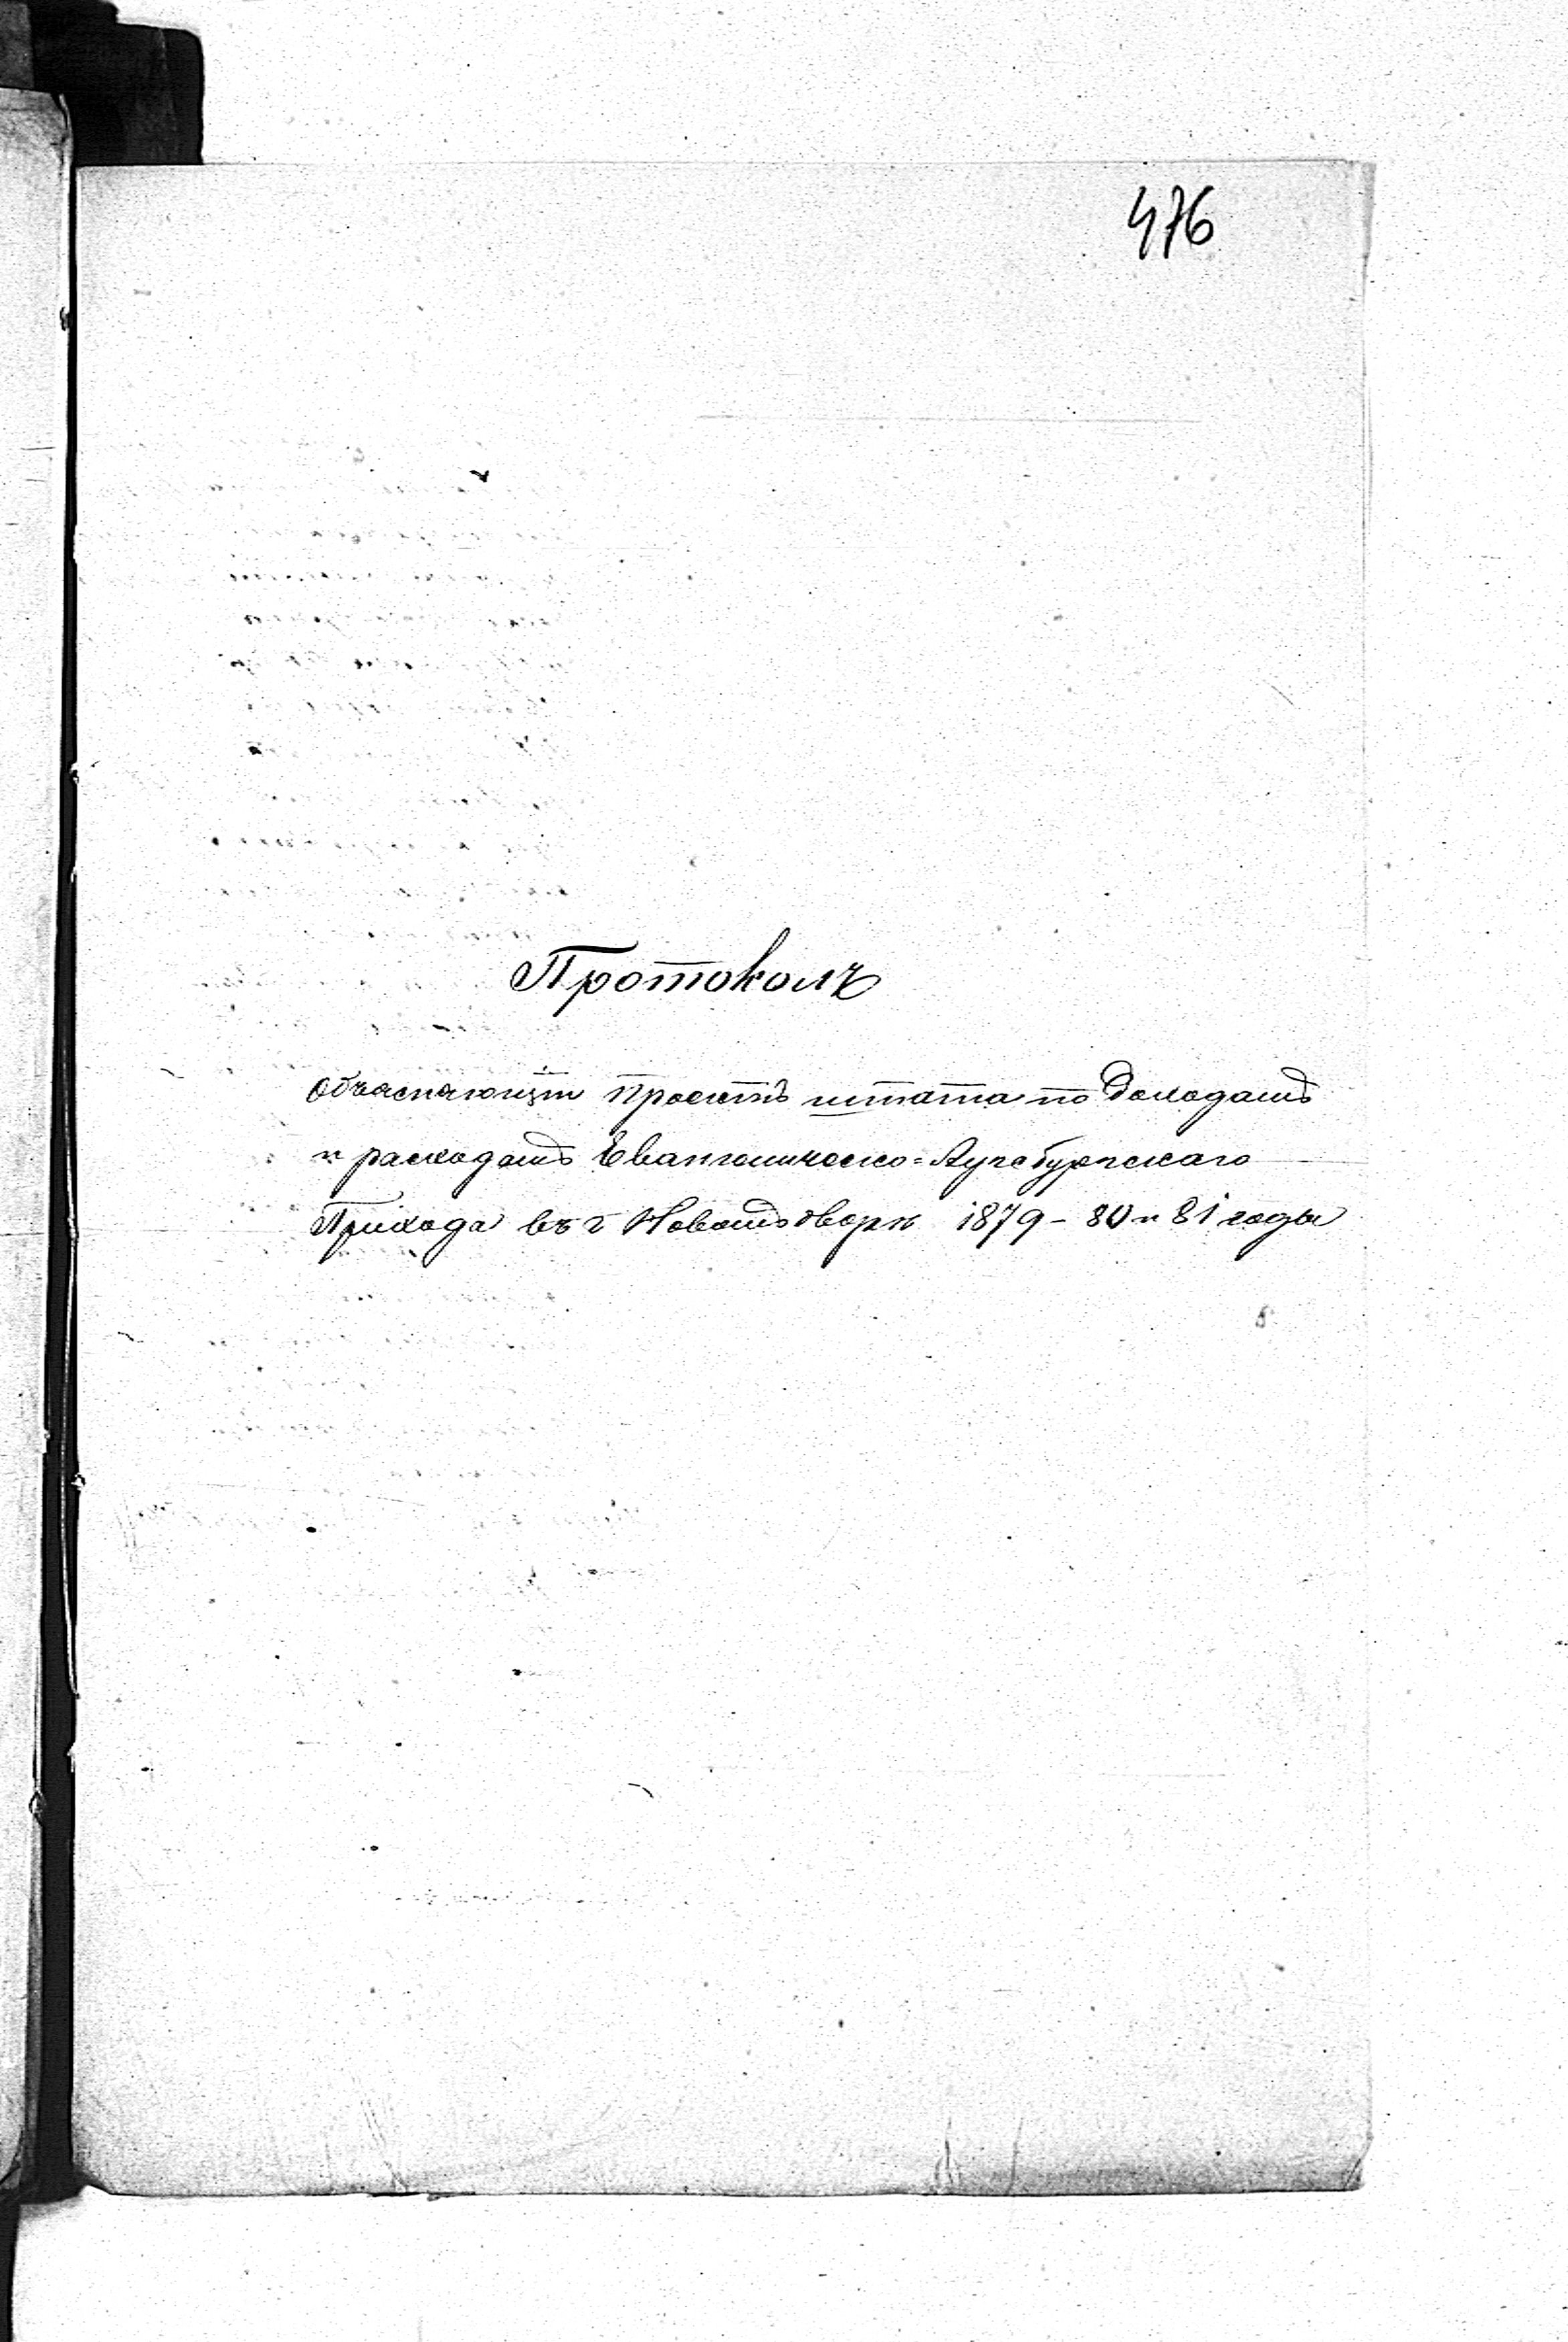 476
Протоколъ
Объясняющій Проектъ штата по Доходамъ
и расходамъ Евангелическо=Аугсбургскаго
Прихода въ г Новомъ дворѣ 1879 - 80 и 81 годы